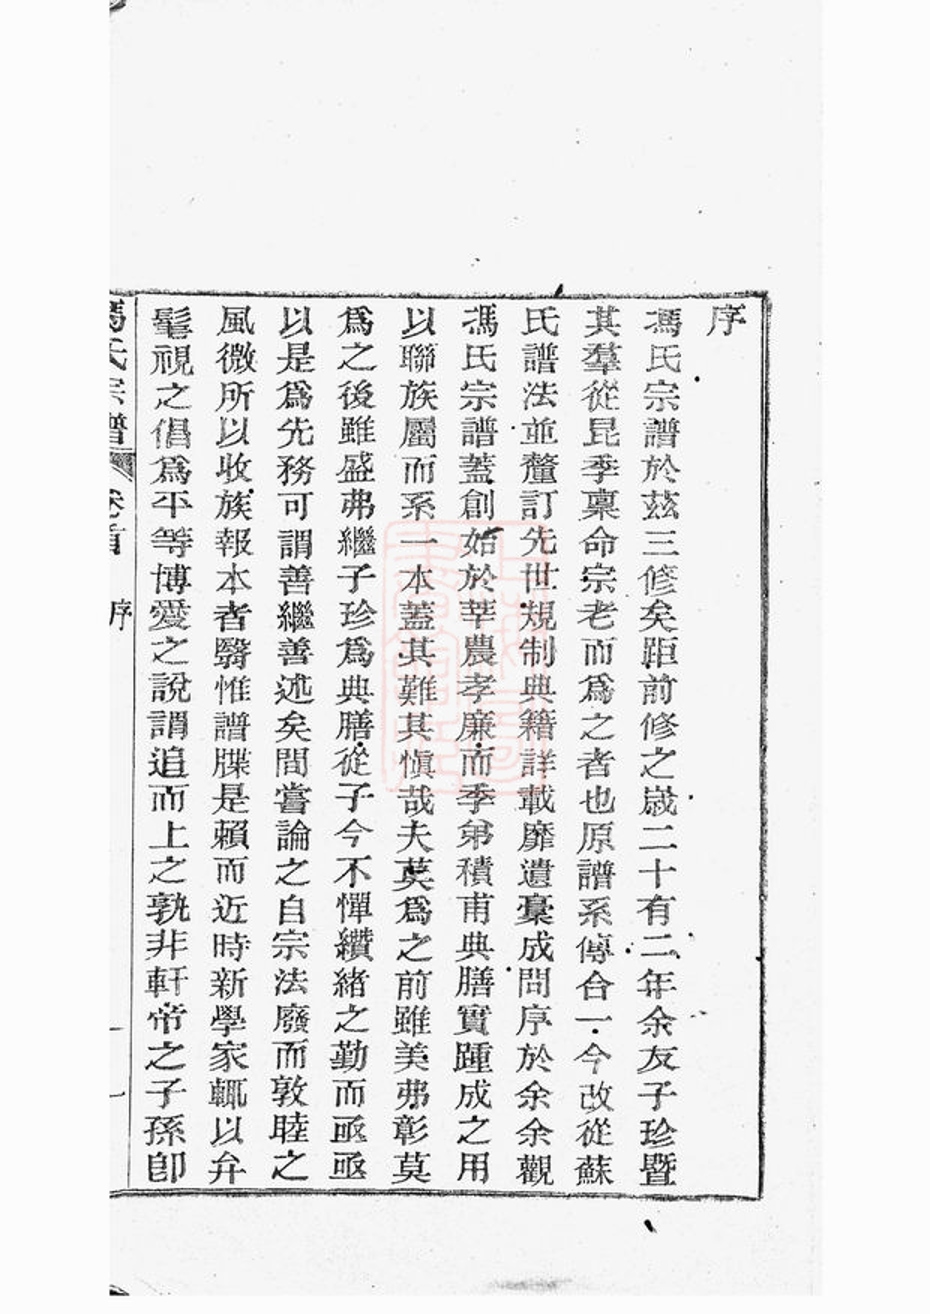 序
馮氏宗譜於茲三修矣距前修之歲二十有二年余友子珍暨
其羣從昆季稟命宗老而爲之者也原譜系傳合一今改從蘇
氏譜法並釐訂先世規制典籍詳載靡遺稾成問序於余余觀
馮氏宗譜蓋創始於莘農孝廉而季弟積甫典膳實踵成之用
以聯族屬而系一本蓋其難其愼哉夫莫爲之前雖美弗彰莫
爲之後雖盛弗繼子珍爲典膳從子今不憚纘緒之勤而亟亟
以是爲先務可謂善繼善述矣間嘗論之自宗法廢而敦睦之
風微所以收族報本者翳惟譜牒是賴而近時新學家輒以弁
髦視之倡爲平等博愛之說謂追而上之孰非軒帝之子孫卽
馮氏宗譜 卷首 序 一